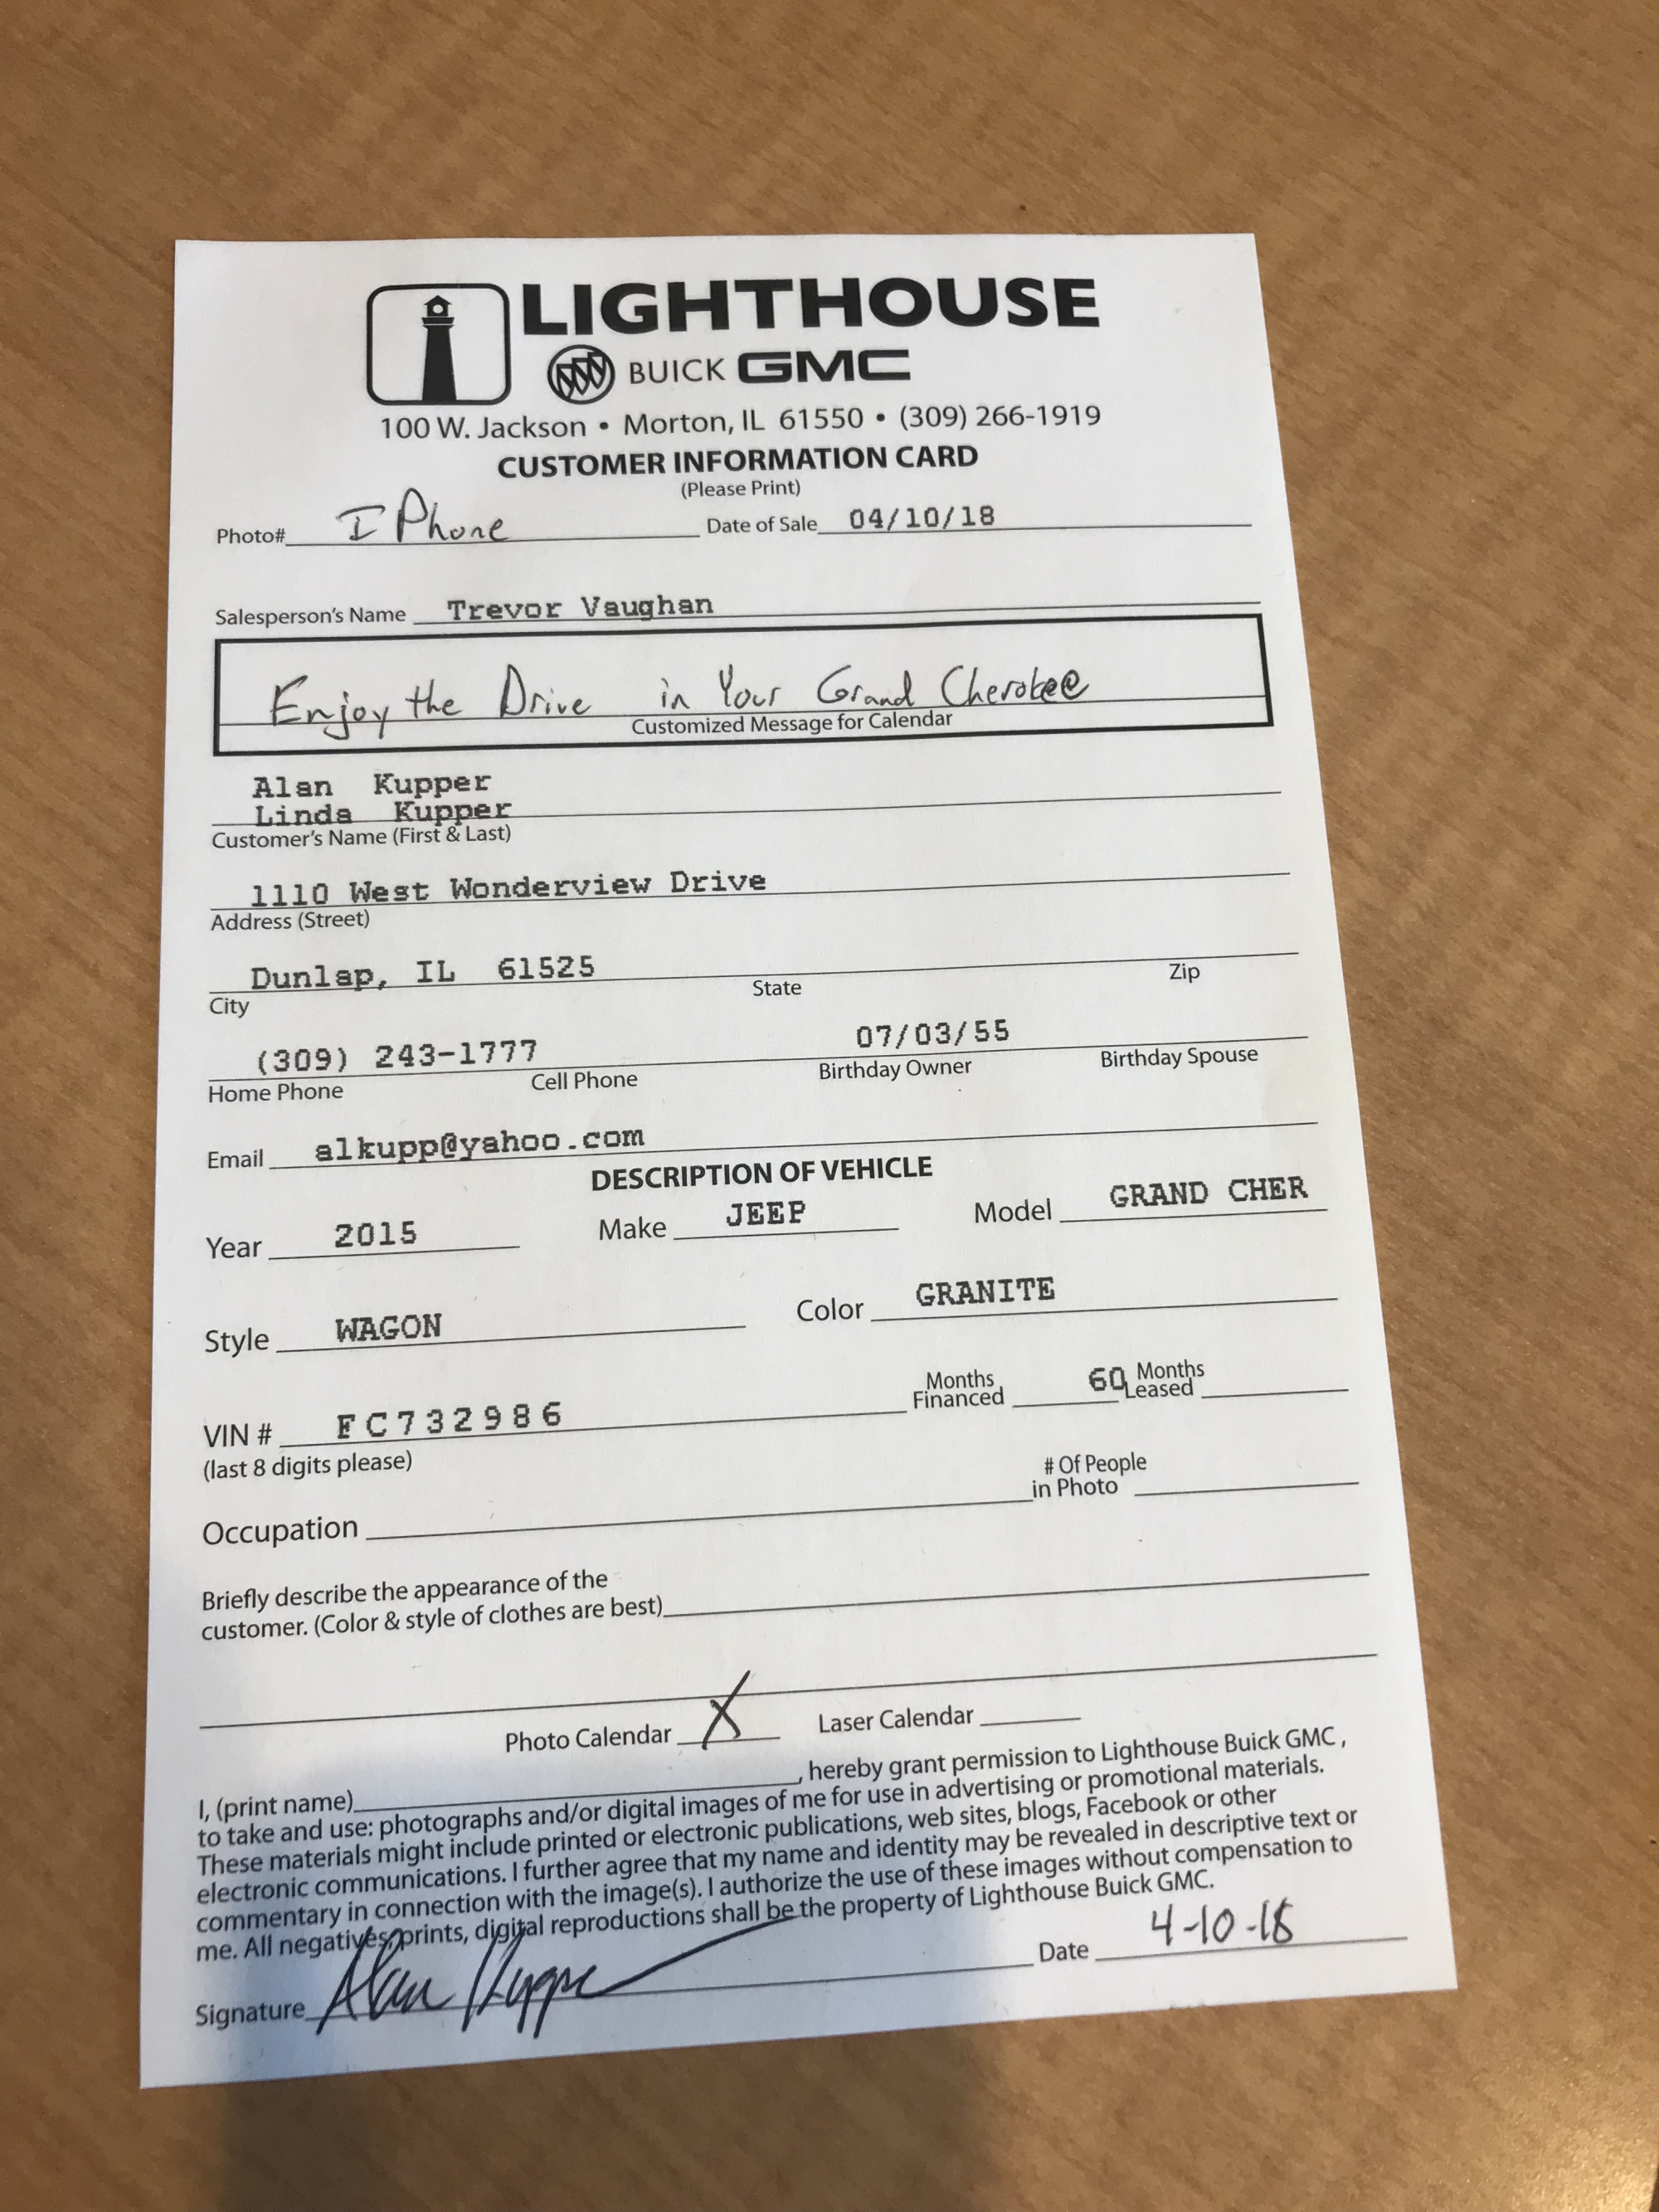 LIGHTHOUSE
BUICK GMC
100 W. Jackson • Morton, IL 61550 • (309) 266-1919
CUSTOMER INFORMATION CARD
(Please Print)
Photo# I Phone Date of Sale 04/10/18
Salesperson's Name Trevor Vaughan
Enjoy the Drive in Your Grand Cherokee
Customized Message for Calendar
Alan Kupper
Linda Kupper
Customer's Name (First & Last)
1110 West Wonderview Drive
Address (Street)
Dunlap, IL 61525
City State Zip
(309) 243-1777 07/03/55
Home Phone Cell Phone Birthday Owner Birthday Spouse
Email alkupp@yahoo.com
DESCRIPTION OF VEHICLE
Year 2015 Make JEEP Model GRAND CHER
Style WAGON Color GRANITE
VIN # FC732986 Months Financed 60 Months Leased
(last 8 digits please)
Occupation # Of People in Photo
Briefly describe the appearance of the
customer. (Color & style of clothes are best)
Photo Calendar X Laser Calendar
I, (print name) , hereby grant permission to Lighthouse Buick GMC ,
to take and use: photographs and/or digital images of me for use in advertising or promotional materials.
These materials might include printed or electronic publications, web sites, blogs, Facebook or other
electronic communications. I further agree that my name and identity may be revealed in descriptive text or
commentary in connection with the image(s). I authorize the use of these images without compensation to
me. All negatives, prints, digital reproductions shall be the property of Lighthouse Buick GMC.
Signature Alan Kupper Date 4-10-18